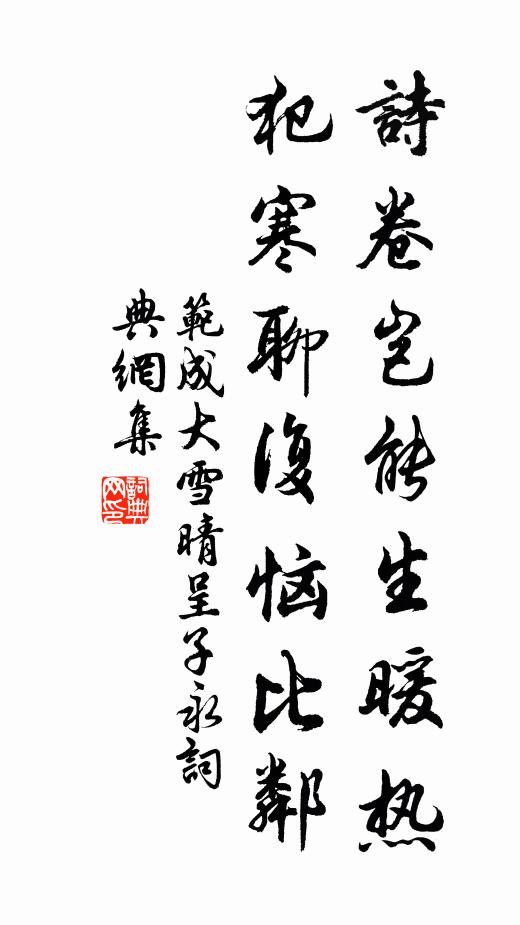 詩卷岂能生暖热
犯寒聊復恼比鄰
範成大雪晴呈子永詞
典網集
詞典網印